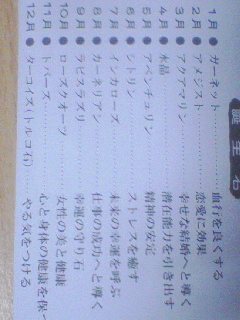 誕生石
1月●ガーネット…………血行を良くする
2月●アメシスト…………恋愛に効果
3月●アクアマリン………幸せな結婚へと導く
4月●水晶…………………潜在能力を引き出す
5月●アベンチュリン……精神の安定
6月●シトリン……………ストレスを癒す
7月●インカローズ………未来の幸運を呼ぶ
8月●カーネリアン………仕事の成功へと導く
9月●ラピスラズリ………幸運の守り石
10月●ローズクオーツ……女性の美と健康
11月●トパーズ……………心と身体の健康を保つ
12月●ターコイズ(トルコ石)…やる気をつける